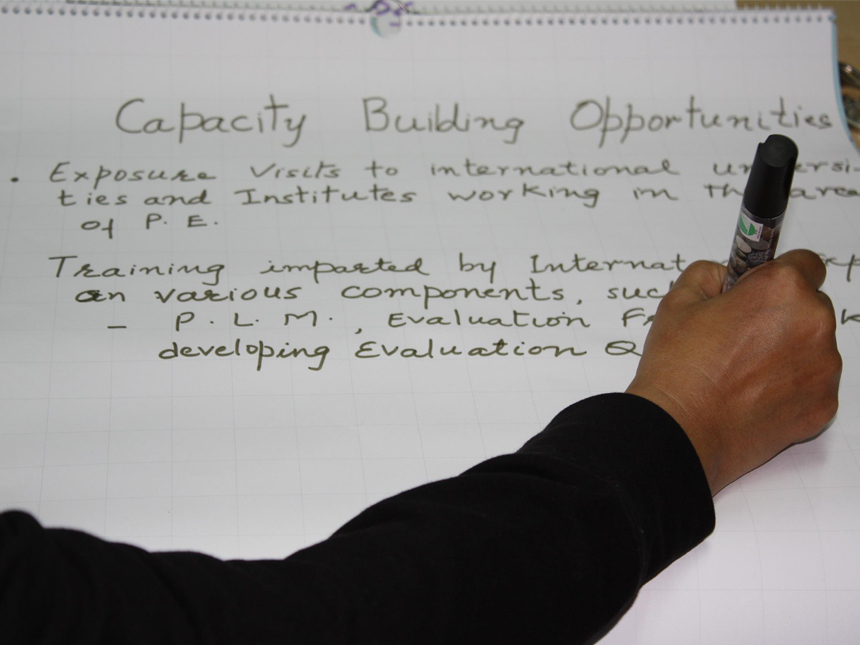 Capacity Building Opportunities
• Exposure Visits to international
ties and Institutes working in the area
of P. E.
Training imparted by
on various components,
- P. L. M., Evaluation
developing Evaluation